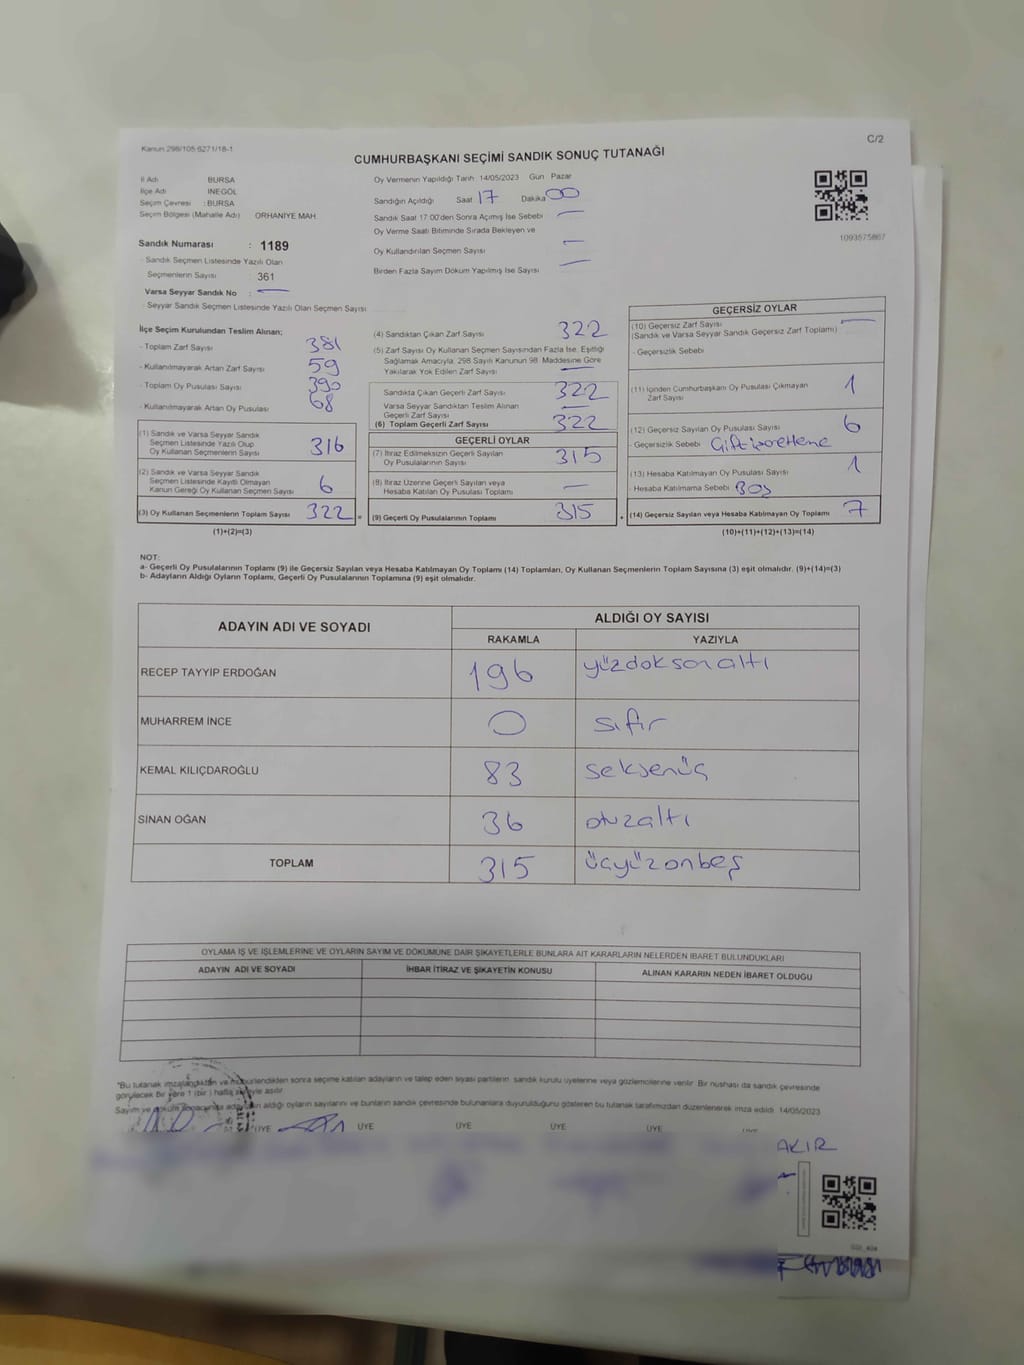 Kanun 298/105 6271/18-1
C/2
CUMHURBAŞKANI SEÇİMİ SANDIK SONUÇ TUTANAĞI
İl Adı BURSA
İlçe Adı İNEGÖL
Seçim Çevresi : BURSA
Seçim Bölgesi (Mahalle Adı) ORHANİYE MAH.
Sandık Numarası : 1189
- Sandık Seçmen Listesinde Yazılı Olan
Seçmenlerin Sayısı : 361
Varsa Seyyar Sandık No : —
- Seyyar Sandık Seçmen Listesinde Yazılı Olan Seçmen Sayısı :
Oy Vermenin Yapıldığı Tarih 14/05/2023 Gün Pazar
Sandığın Açıldığı Saat 17 Dakika 00
Sandık Saat 17:00'den Sonra Açılmış İse Sebebi —
Oy Verme Saati Bitiminde Sırada Bekleyen ve
Oy Kullandırılan Seçmen Sayısı —
Birden Fazla Sayım Döküm Yapılmış İse Sayısı —
1093575867
İlçe Seçim Kurulundan Teslim Alınan;
- Toplam Zarf Sayısı 381
- Kullanılmayarak Artan Zarf Sayısı 59
- Toplam Oy Pusulası Sayısı 390
- Kullanılmayarak Artan Oy Pusulası 68
(1) Sandık ve Varsa Seyyar Sandık
Seçmen Listesinde Yazılı Olup
Oy Kullanan Seçmenlerin Sayısı 316
(2) Sandık ve Varsa Seyyar Sandık
Seçmen Listesinde Kayıtlı Olmayan
Kanun Gereği Oy Kullanan Seçmen Sayısı 6
(3) Oy Kullanan Seçmenlerin Toplam Sayısı 322 =
(1)+(2)=(3)
(4) Sandıktan Çıkan Zarf Sayısı 322
(5) Zarf Sayısı Oy Kullanan Seçmen Sayısından Fazla İse, Eşitliği
Sağlamak Amacıyla, 298 Sayılı Kanunun 98. Maddesine Göre
Yakılarak Yok Edilen Zarf Sayısı —
Sandıkta Çıkan Geçerli Zarf Sayısı 322
Varsa Seyyar Sandıktan Teslim Alınan
Geçerli Zarf Sayısı —
(6) Toplam Geçerli Zarf Sayısı 322
GEÇERLİ OYLAR
(7) İtiraz Edilmeksizin Geçerli Sayılan
Oy Pusulalarının Sayısı 315
(8) İtiraz Üzerine Geçerli Sayılan veya
Hesaba Katılan Oy Pusulası Toplamı —
(9) Geçerli Oy Pusulalarının Toplamı 315 +
GEÇERSİZ OYLAR
(10) Geçersiz Zarf Sayısı —
(Sandık ve Varsa Seyyar Sandık Geçersiz Zarf Toplamı)
- Geçersizlik Sebebi
(11) İçinden Cumhurbaşkanı Oy Pusulası Çıkmayan
Zarf Sayısı 1
(12) Geçersiz Sayılan Oy Pusulası Sayısı 6
- Geçersizlik Sebebi
(13) Hesaba Katılmayan Oy Pusulası Sayısı 1
- Hesaba Katılmama Sebebi Boş
(14) Geçersiz Sayılan veya Hesaba Katılmayan Oy Toplamı 7
(10)+(11)+(12)+(13)=(14)
NOT:
a- Geçerli Oy Pusulalarının Toplamı (9) ile Geçersiz Sayılan veya Hesaba Katılmayan Oy Toplamı (14) Toplamları, Oy Kullanan Seçmenlerin Toplam Sayısına (3) eşit olmalıdır. (9)+(14)=(3)
b- Adayların Aldığı Oyların Toplamı, Geçerli Oy Pusulalarının Toplamına (9) eşit olmalıdır.
ADAYIN ADI VE SOYADI ALDIĞI OY SAYISI
RAKAMLA YAZIYLA
RECEP TAYYİP ERDOĞAN 196 yüzdoksanaltı
MUHARREM İNCE 0 sıfır
KEMAL KILIÇDAROĞLU 83 seksenüç
SİNAN OĞAN 36 otuzaltı
TOPLAM 315 üçyüzonbeş
OYLAMA İŞ VE İŞLEMLERİNE VE OYLARIN SAYIM VE DÖKÜMÜNE DAİR ŞİKAYETLERLE BUNLARA AİT KARARLARIN NELERDEN İBARET BULUNDUKLARI
ADAYIN ADI VE SOYADI İHBAR İTİRAZ VE ŞİKAYETİN KONUSU ALINAN KARARIN NEDEN İBARET OLDUĞU
"Bu tutanak imzalandıktan ve mühürlendikten sonra seçime katılan adayların ve talep eden siyasi partilerin sandık kurulu üyelerine veya gözlemcilerine verilir. Bir nüshası da sandık çevresinde
görülecek bir yere 1 (bir) hafta süreyle asılır.
Sayım ve aldığı oyların sayılarını ve bunların sandık çevresinde bulunanlara duyurulduğunu gösteren bu tutanak tarafımızdan düzenlenerek imza edildi. 14/05/2023
ÜYE ÜYE ÜYE ÜYE ÜYE
AKIR